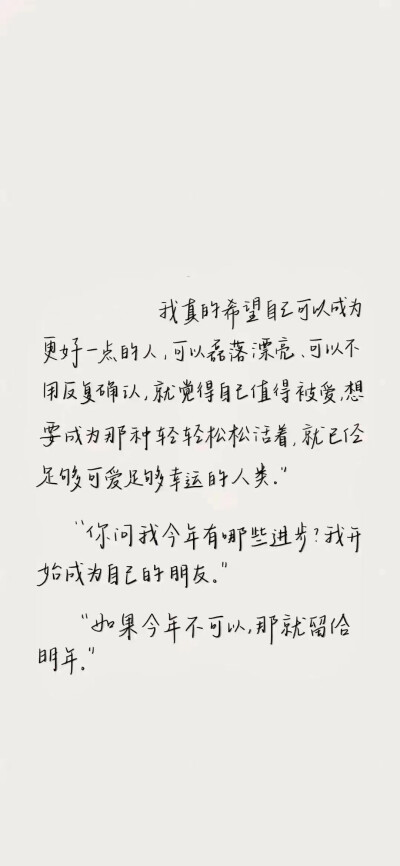 我真的希望自己可以成为
更好一点的人,可以磊落漂亮、可以不
用反复确认,就觉得自己值得被爱,想
要成为那种轻轻松松活着,就已经
足够可爱足够幸运的人类。"
"你问我今年有哪些进步?我开
始成为自己的朋友。"
"如果今年不可以,那就留给
明年。"